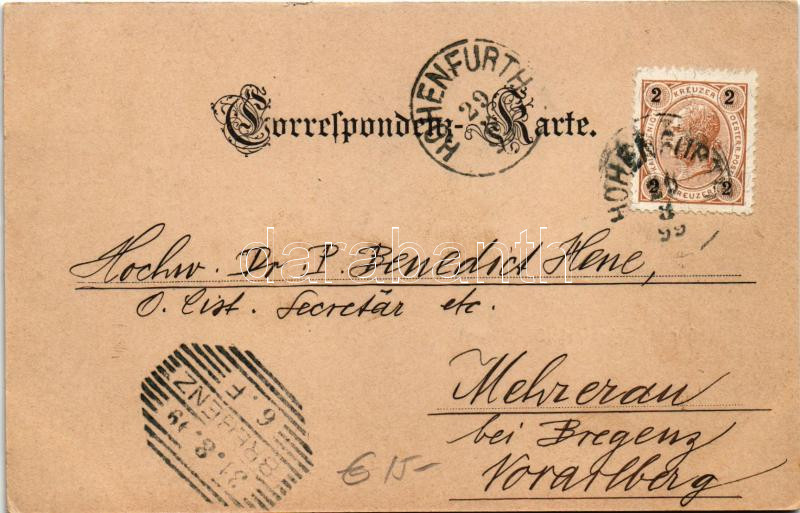 Correspondenz-Karte.
HOHENFURTH
29
2 KREUZER 2
OESTERR. POST
HOHENFURTH
2 KREUZER 2
99
darabanth
Hochw. Dr. P. Benedict Hene,
O. Cist. Secretär etc.
Mehrerau
bei Bregenz
Vorarlberg
6. F
BREGENZ
31.8.99
€ 15-